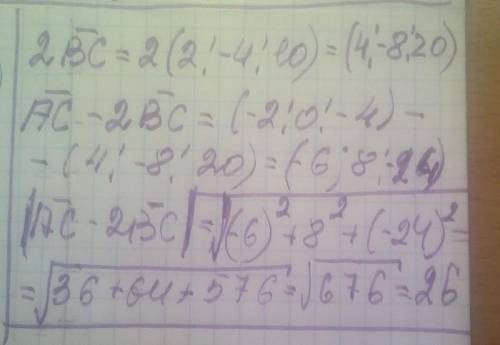 2B̅C̅ = 2(2; -4; 10) = (4; -8; 20)
A̅C̅ - 2B̅C̅ = (-2; 0; -4) -
- (4; -8; 20) = (-6; 8; -24)
|A̅C̅ - 2B̅C̅| = √(-6)² + 8² + (-24)² =
= √36 + 64 + 576 = √676 = 26